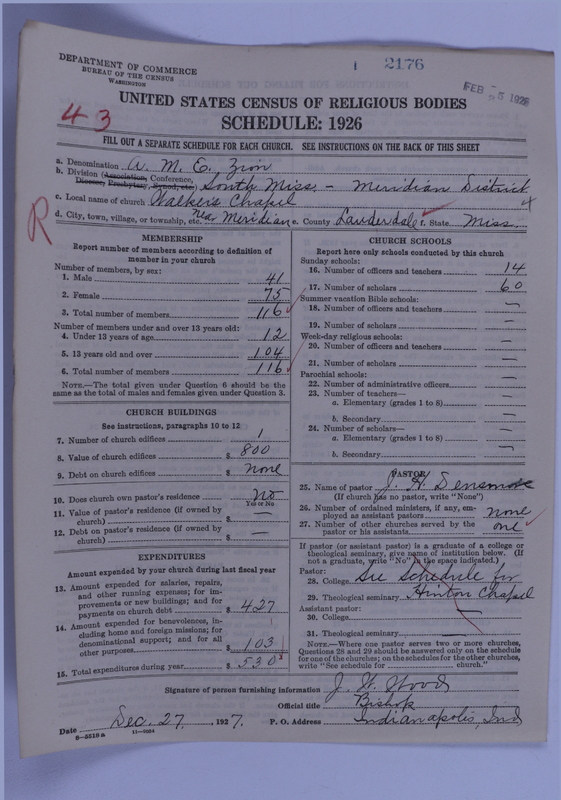 DEPARTMENT OF COMMERCE
BUREAU OF THE CENSUS
WASHINGTON
1 2176
FEB 1928
43
UNITED STATES CENSUS OF RELIGIOUS BODIES
SCHEDULE: 1926
FILL OUT A SEPARATE SCHEDULE FOR EACH CHURCH. SEE INSTRUCTIONS ON THE BACK OF THIS SHEET
a. Denomination A. M. E. Zion
b. Division (Association, Conference, Diocese, Presbytery, Synod, etc.) South Miss. - Meridian District
c. Local name of church Walker's Chapel
R
d. City, town, village, or township, etc. Near Meridian e. County Lauderdale f. State Miss.
MEMBERSHIP
Report number of members according to definition of
member in your church
Number of members, by sex:
1. Male 41
2. Female 75
3. Total number of members 116
Number of members under and over 13 years old:
4. Under 13 years of age 12
5. 13 years old and over 104
6. Total number of members 116
NOTE.—The total given under Question 6 should be the
same as the total of males and females given under Question 3.
CHURCH BUILDINGS
See instructions, paragraphs 10 to 12
7. Number of church edifices 1
8. Value of church edifices $ 800
9. Debt on church edifices $ none
10. Does church own pastor's residence no
Yes or No
11. Value of pastor's residence (if owned by
church) $ —
12. Debt on pastor's residence (if owned by
church) $ —
EXPENDITURES
Amount expended by your church during last fiscal year
13. Amount expended for salaries, repairs,
and other running expenses; for im-
provements or new buildings; and for
payments on church debt $ 427
14. Amount expended for benevolences, in-
cluding home and foreign missions; for
denominational support; and for all
other purposes $ 103
15. Total expenditures during year $ 530
CHURCH SCHOOLS
Report here only schools conducted by this church
Sunday schools:
16. Number of officers and teachers 14
17. Number of scholars 60
Summer vacation Bible schools:
18. Number of officers and teachers —
19. Number of scholars —
Week-day religious schools:
20. Number of officers and teachers —
21. Number of scholars —
Parochial schools:
22. Number of administrative officers —
23. Number of teachers—
a. Elementary (grades 1 to 8) —
b. Secondary —
24. Number of scholars—
a. Elementary (grades 1 to 8) —
b. Secondary —
PASTOR
25. Name of pastor J. H. Densmore
(If church has no pastor, write "None")
26. Number of ordained ministers, if any, em-
ployed as assistant pastors none
27. Number of other churches served by the
pastor or his assistants one
If pastor (or assistant pastor) is a graduate of a college or
theological seminary, give name of institution below. (If
not a graduate, write "No" in the space indicated.)
Pastor:
28. College See Schedule for
29. Theological seminary Hinton Chapel
Assistant pastor:
30. College —
31. Theological seminary —
NOTE.—Where one pastor serves two or more churches,
Questions 28 and 29 should be answered only on the schedule
for one of the churches; on the schedules for the other churches,
write "See schedule for church."
Signature of person furnishing information J. W. Wood
Official title Bishop
Date Dec. 27, 1927. P. O. Address Indianapolis, Ind
8—5518a 11—9024